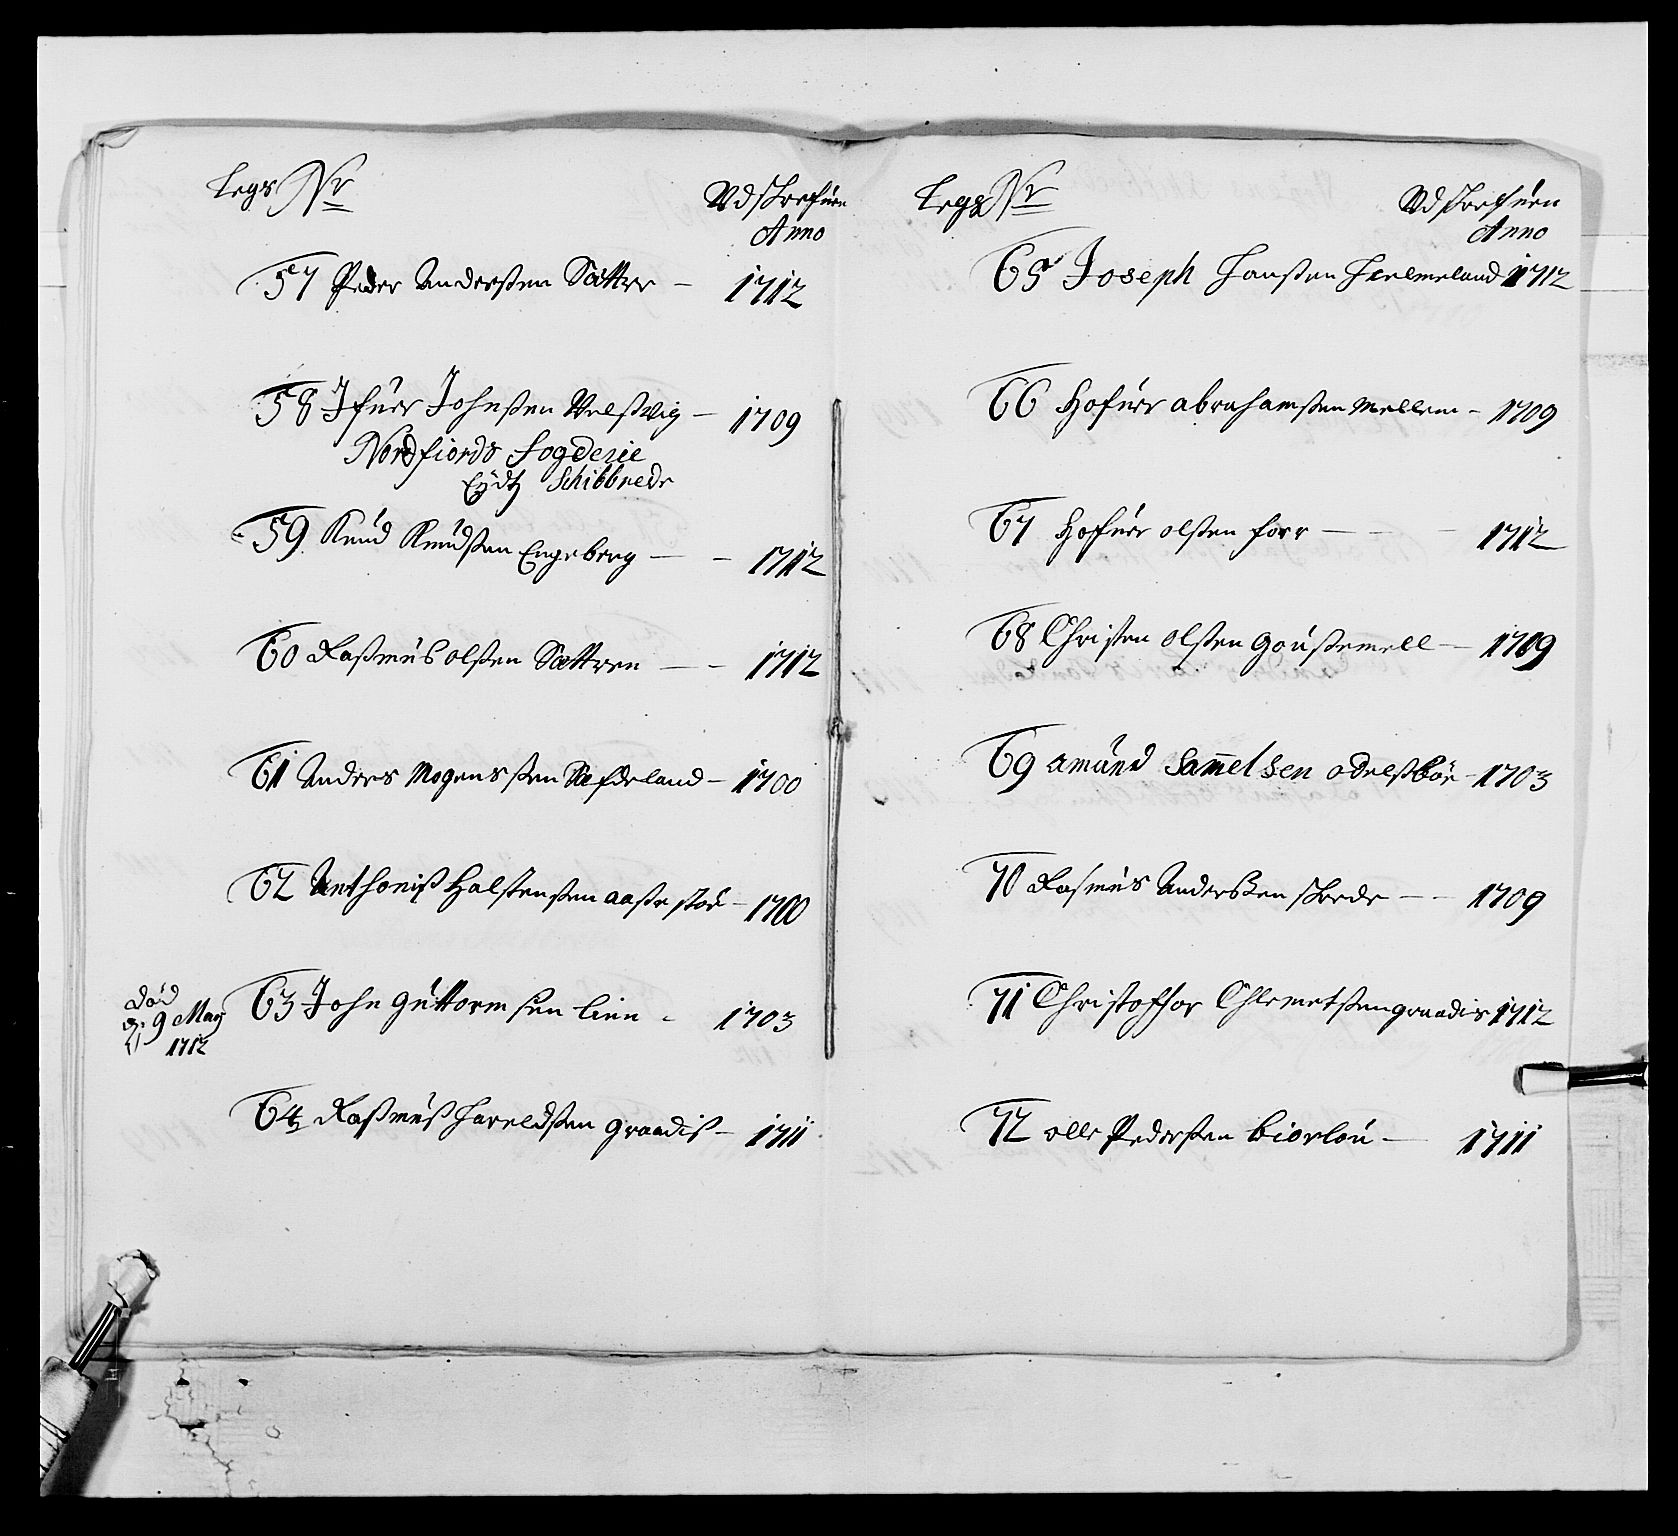 Legs Nr
Udskrefven
Anno
57 Peder Andersßen Sættre – 1712
58 Ifuer Johnßen Velßvig – 1709
Nordfiords fogderie
Eÿdtz Schibbrede
59 Knud Knudßen Engeberg – – 1712
60 Raßmus olßen Sættren – – 1712
61 Anders Mogensßen Sæfdeland – 1700
62 Anthoniß Halstenßen aaste støe – 1700
død
9 Maÿ
1712
63 John Guttormsen Lien – 1703
64 Raßmuß Hareldßen graadiß – 1711
Legs Nr
Udskrefuen
Anno
65 Joseph Hanßen Hielmeland 1712
66 Hofuer abrahamßen Mellem – 1709
67 Hofuer olßen forr – – – 1712
68 Christen olßen goußemell – 1709
69 amund Sammelsen odelßbøe – 1703
70 Rasmus Anderßen skrede – – 1709
71 Christoffor Chlemetßen graadis 1712
72 olle Pederßen biorlou – 1711